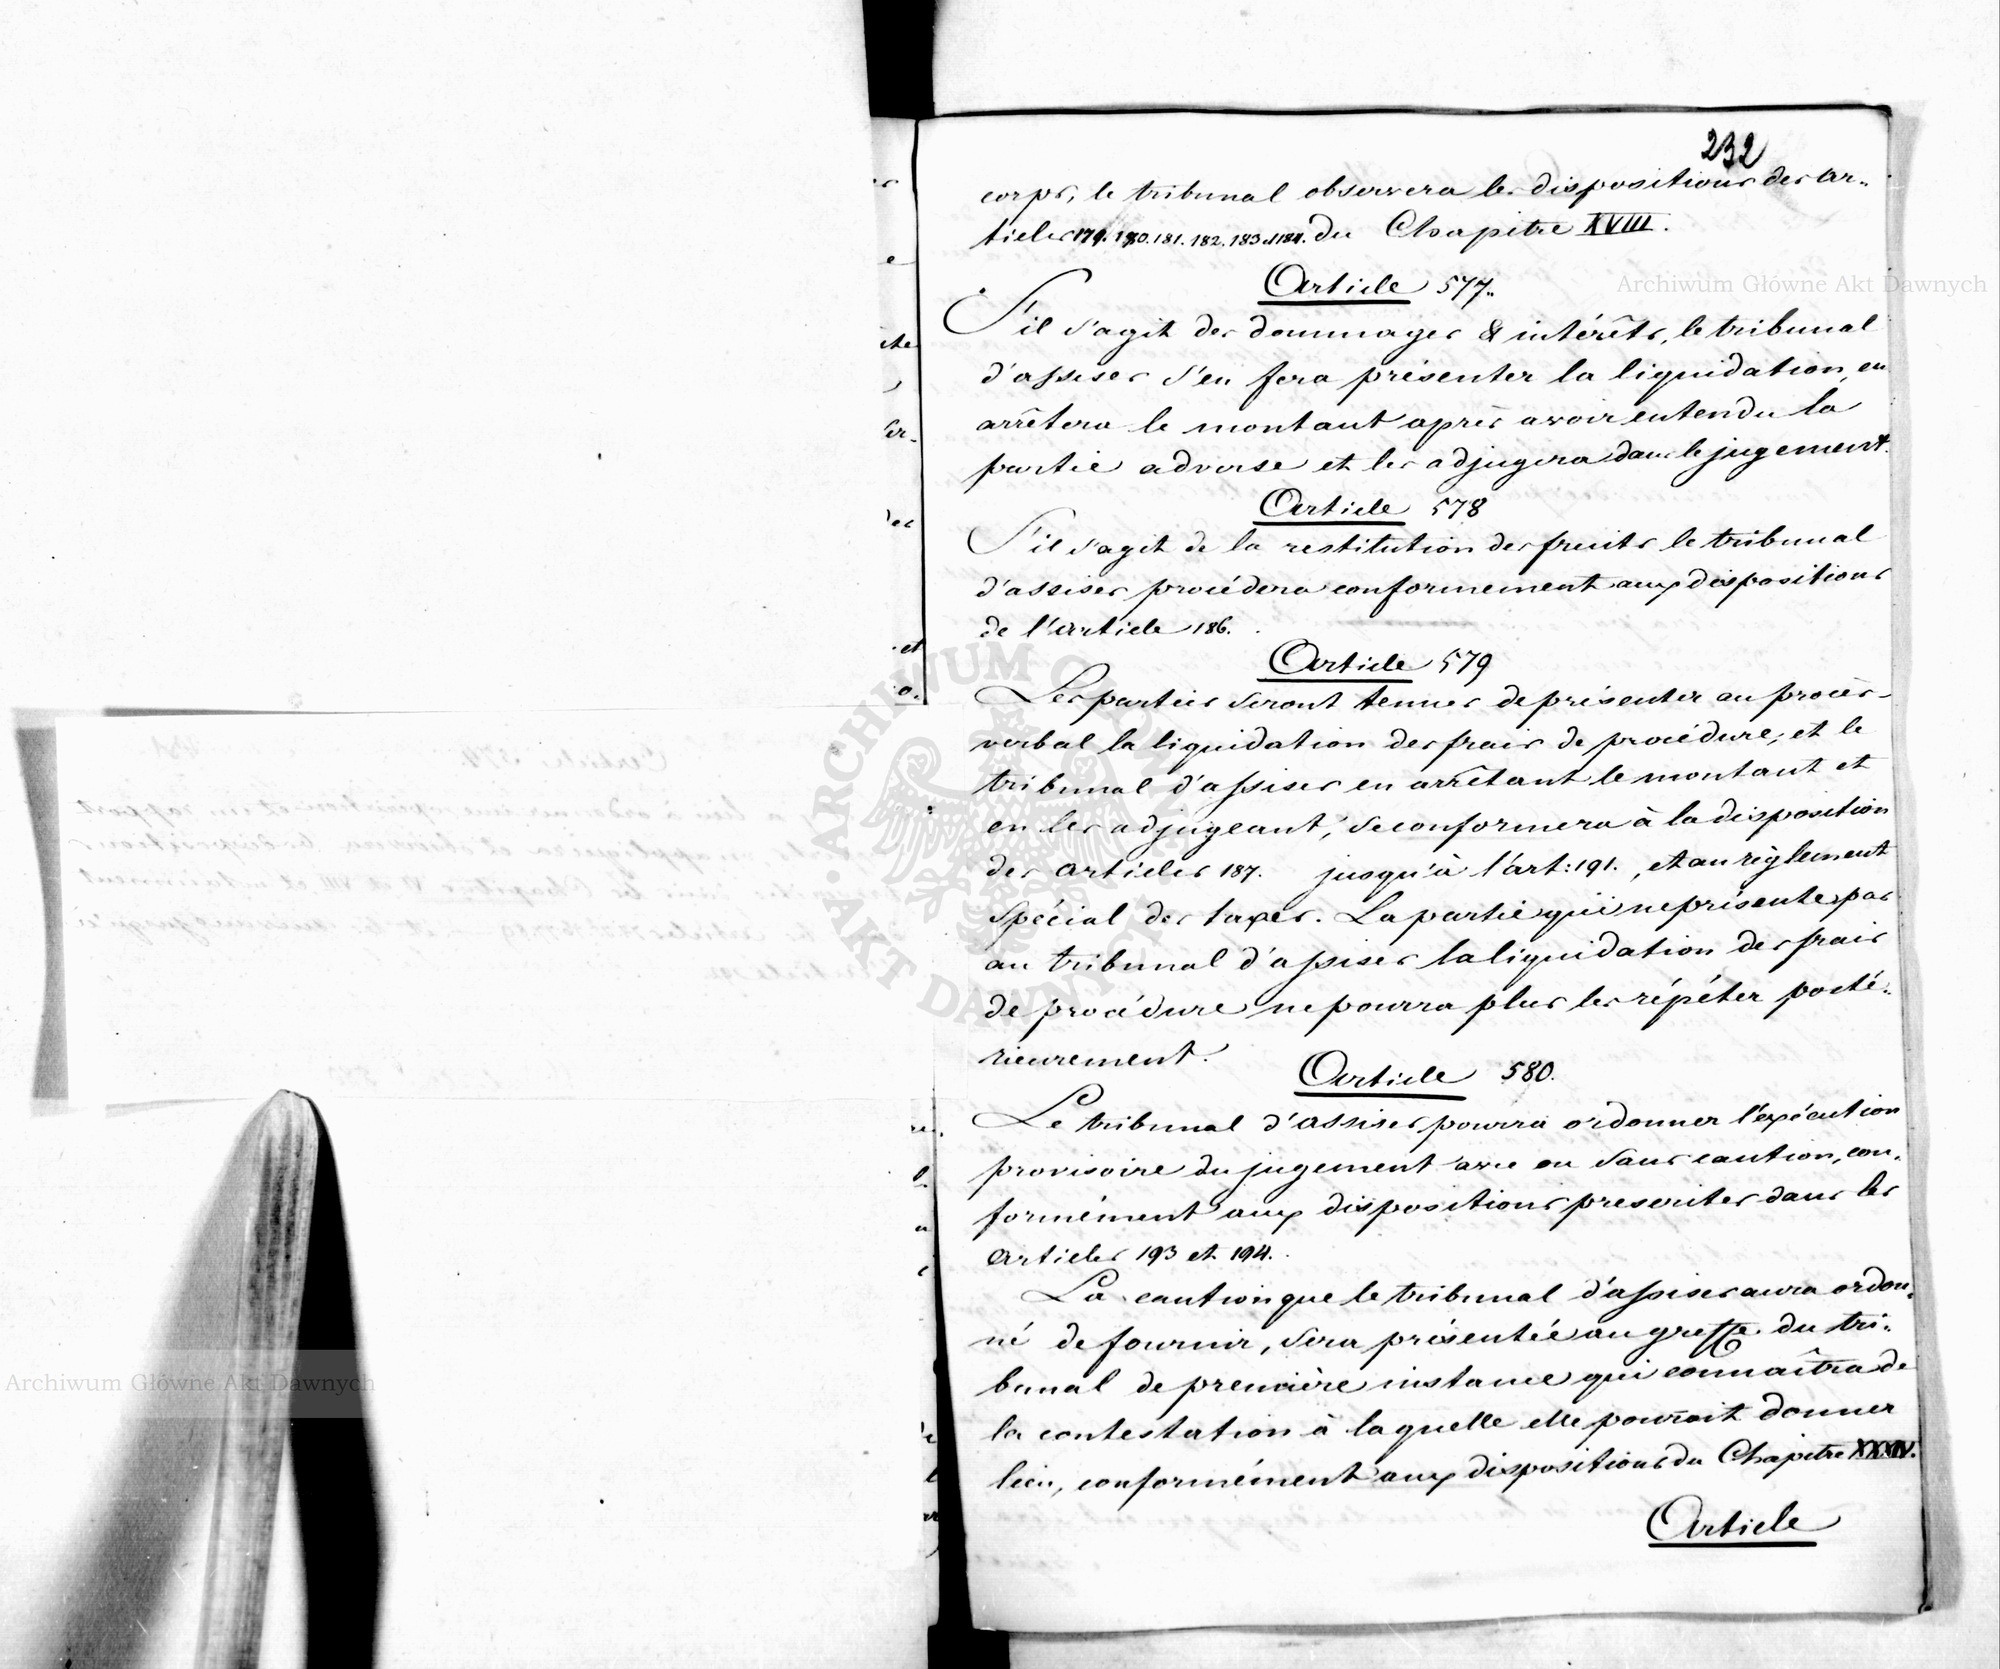 232
corps, le tribunal observera les dispositions des ar-
ticles 179. 180. 181. 182. 183 et 184. du Chapitre XVIII.
Article 577.
S'il s'agit des dommages & intérêts, le tribunal
d'assises s'en fera présenter la liquidation, en
arrêtera le montant après avoir entendu la
partie adverse et les adjugera dans le jugement.
Article 578
S'il s'agit de la restitution des fruits le tribunal
d'assises procédera conformement aux dispositions
de l'Article 186.
Article 579
Les parties seront tenues de présenter au procès-
verbal la liquidation des frais de procédure; et le
tribunal d'assises en arrêtant le montant et
en les adjugeant, se conformera à la disposition
des articles 187. jusqu'à l'art: 191., et au règlement
spécial des taxes. La partie qui ne présente pas
au tribunal d'assises la liquidation des frais
de procédure ne pourra plus les répéter posté-
rieurement.
Article 580.
Le tribunal d'assises pourra ordonner l'exécution
provisoire du jugement avec ou sans caution, con-
formément aux dispositions prescrites dans les
Articles 193 et 194.
La caution que le tribunal d'assises aura ordon-
né de fournir, sera présentée au greffe du tri-
bunal de première instance qui connaîtra de
la contestation à laquelle elle pourroit donner
lieu, conformément aux dispositions du Chapitre
Article
Archiwum Główne Akt Dawnych
ARCHIWUM GŁÓWNE AKT DAWNYCH
Archiwum Główne Akt Dawnych